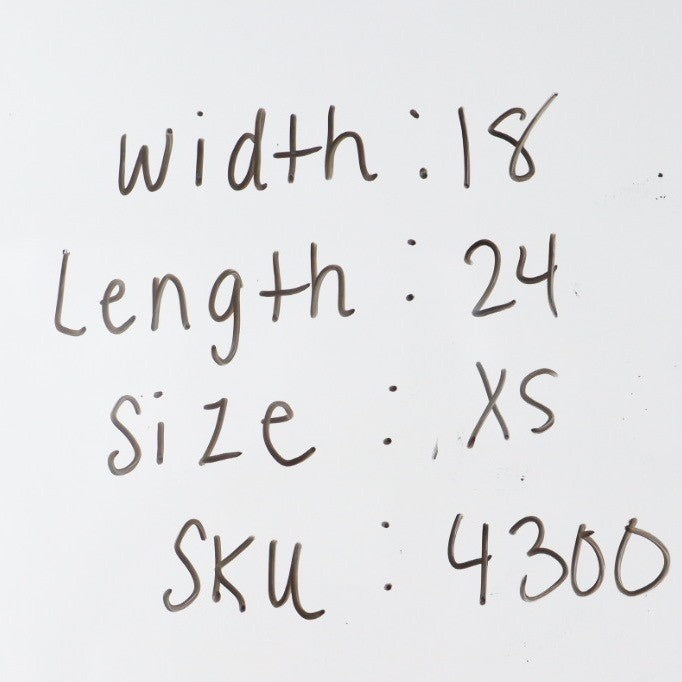 Width : 18
Length : 24
Size : XS
SKU : 4300